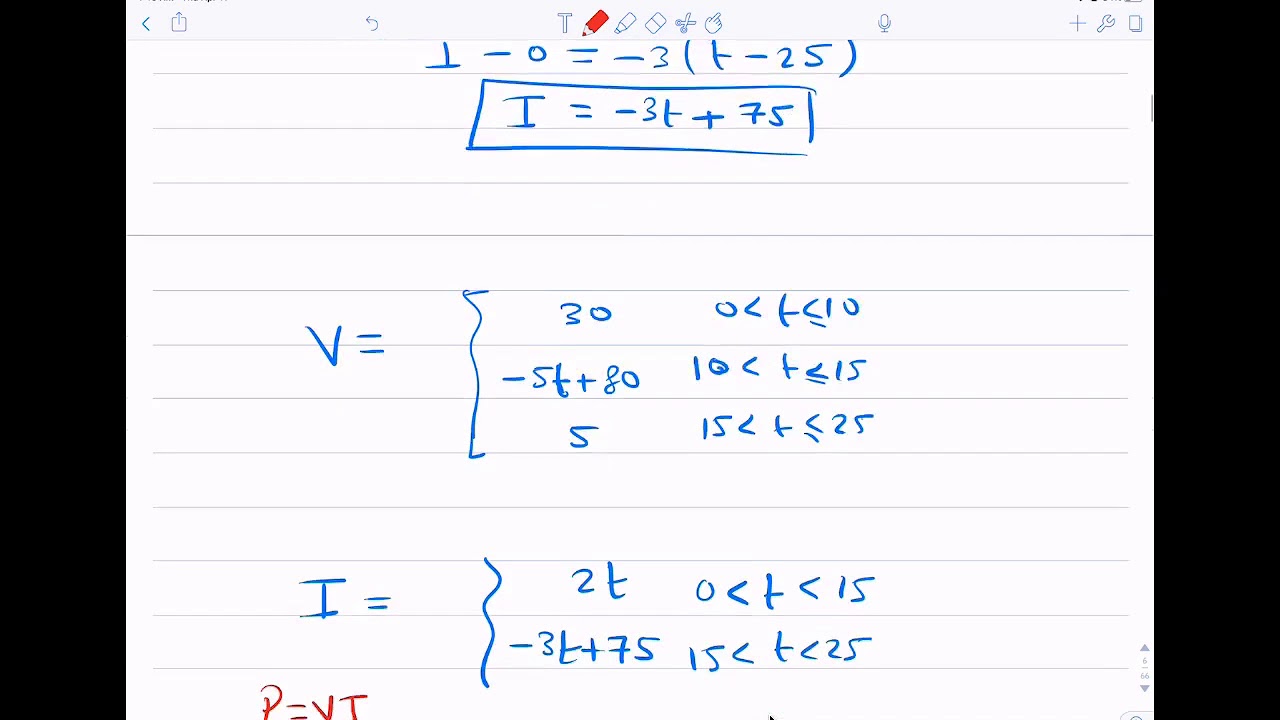 I - 0 = -3(t - 25)
I = -3t + 75
V = 30 0 < t ≤ 10
-5t + 80 10 < t ≤ 15
5 15 < t ≤ 25
I = 2t 0 < t < 15
-3t + 75 15 < t < 25
6
66
P = VI